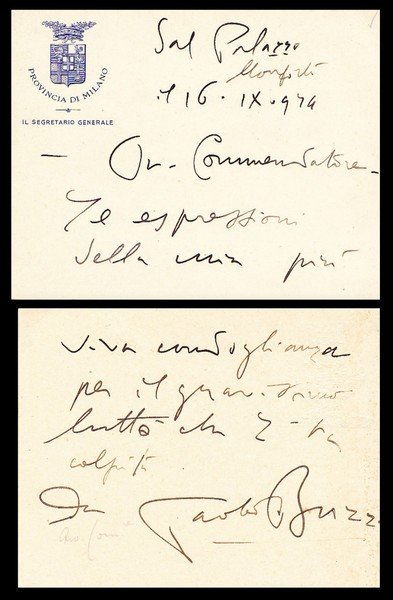 PROVINCIA DI MILANO
IL SEGRETARIO GENERALE
Dal Palazzo
Monforte
il 16. IX. 924
- On. Commendatore -
Le espressioni
della mia più
viva condoglianza
per il gravissimo
lutto che L'ha
colpita
Da Paolo Buzzi